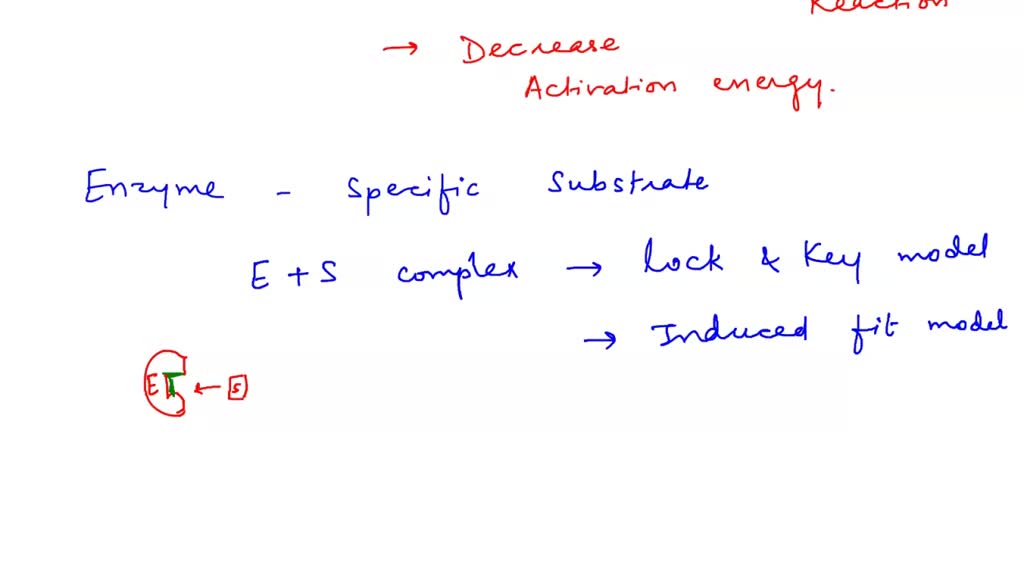 Reaction
→ Decrease
Activation energy.
Enzyme - Specific Substrate
E + S complex → Lock & Key model
→ Induced fit model
E ← S